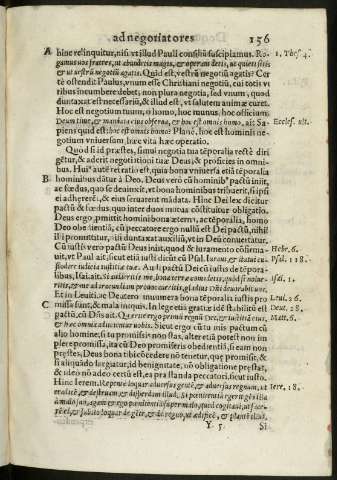 ad negotiatores 156
A hinc relinquitur, nisi vt illud Pauli consiliũ suscipiamus. Ro- 1. Thes. 4.
gamus vos fratres, vt abundetis magis, & operam detis, vt quieti sitis
& vt vestrũ negotiũ agatis. Quid est, vestrũ negotiũ agatis? Cer
tè ostendit Paulus, vnum esse Christiani negotiũ, cui totis vi
ribus incumbere debet, non plura negotia, sed vnum, quod
duntaxat est necessariũ, & illud est, vt salutem animæ curet.
Hoc est negotium tuum, o homo, hoc munus, hoc officium.
Deum time, & mandata eius obserua, & hoc est omnis homo, ait Sa- Eccles. vlt.
piens quid est: hoc est omnis homo? Planè, hoc est hominis ne-
gotium vniuersum hæc vita hæc operatio.
Quod si id præstes, simul negotia tua tẽporalia rectè diri
getur, & aderit negotiationi tuæ Deus, & proficies in omni-
bus. Huiº autẽ ratio est, quia bona vniuersa etiã tẽporalia
B hominibus dãtur à Deo. Deus verò cũ hominibº pactũ iniit,
ac fœdus, quo se deuinxit, vt bona hominibus tribuerit, si ipsi
ei adhererẽt, & eius seruarent mãdata. Hinc Dei lex dicitur
pactũ & fœdus, quo inter duos mutua cõstituitur obligatio.
Deus ergo promittit hominibonaæterna, ac tẽporalia, homo
Deo obedientiã, cũ peccatore ergo nullũ est Dei pactũ, nihil
illi promittitur, nisi duntaxat auxiliũ, vt in Deũ conuertatur.
Cũ iustis verò pactũ Deus iniit, quod & iuramento cõfirma- Hebr. 6.
uit, vt Paul. ait, sicut etiã iusti dicũt cũ Psal. Iuraui, & statui cu- Psal. 118.
stodire iudicia iustitiæ tuæ. At hoc pactũ Dei cũ iustis de tẽpora-
libus, Isai. ait. Si volueritis me, bona terræ comedetis, quòd si nolue- Isai. 1.
ritis, & me ad iracundiam prouocaueritis, gladius Dñi deuorabit vos.
Et in Leuiti. & Deutero. innumera bona tẽporalia iustis pro Leui. 26.
C missa sunt, & mala iniquis. In lege etiã gratiæ idẽ stabilitũ est Deut. 28.
pactũ, cũ Dñs ait. Quærite ergo primũ regnũ Dei, & iustitiã eius, Matt. 6.
& hæc omnia adijcientur vobis. Sicut ergo cũ tu mis pactum cũ
alio homine, si is promissis non stas, alter etiã poterit non im
plere promissa, ita cũ Deo promiseris obedientiã, si eam non
præstes, Deus bona tibi cõcedere nõ tenetur, quę promisit, &
si aliquando largiatur, id benignitate, nõ obligatione præstat,
& ideo nõ adeo certũ est, ea præstanda peccatori, sicut iusto.
Hinc Ierem. Repentè loquar aduersus gentẽ, & aduersus regnum, vt Iere. 18.
eradicẽ, & destruam, & disperdam illud. Si pœnitentiã egerit gẽs illa
à malo suo, agam & ego pœnitentiã super malo, quod cogitaui, vt face-
rẽ ei, & subitò loquar de gẽte, & de regno, vt ædificẽ, & plantẽ illud.
Y 5 Si